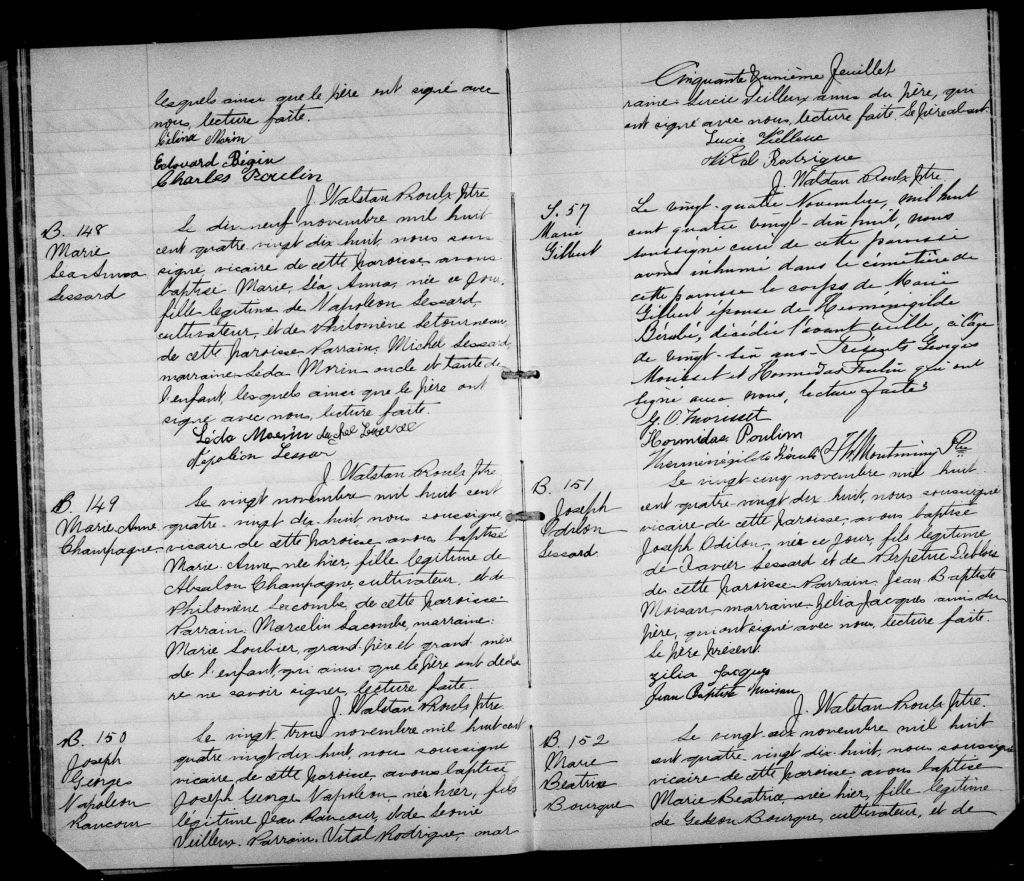 lesquels ainsi que le père ont signé avec
nous, lecture faite.
Célina Morin
Edouard Bégin
Charles Poulin
J. Walstan Proulx Ptre
B. 148
Marie
Lea Anna
Lessard
Le dix-neuf novembre mil huit
cent quatre vingt dix huit, nous sous-
signé, vicaire de cette paroisse avons
baptisé Marie, Léa Anna, née ce jour,
fille légitime de Napoléon Lessard,
cultivateur, et de Philomène Letourneau
de cette paroisse Parrain, Michel Lessard,
marraine Léda Morin oncle et tante de
l'enfant, lesquels ainsi que le père ont
signé avec nous, lecture faite.
Léda Morin
Napoléon Lessar
J. Walstan Proulx Ptre
B. 149
Marie Anne
Champagne
Le vingt novembre mil huit cent
quatre-vingt dix-huit, nous soussigné,
vicaire de cette paroisse, avons baptisé
Marie Anne, née hier, fille légitime de
Absalon Champagne, cultivateur, et de
Philomène Lacombe, de cette paroisse
Parrain: Marcelin Lacombe, marraine:
Marie Loubier, grand-père et grand mère
de l'enfant, qui ainsi que le père ont décla
ré ne savoir signer, lecture faite.
J. Walstan Proulx Ptre
B. 150
Joseph
George
Napoleon
Rancour
Le vingt trois novembre mil huit cent
quatre vingt dix-huit, nous soussigné
vicaire de cette paroisse avons baptisé
Joseph George Napoléon, né hier, fils
légitime Jean Rancour, et de Leonie
Veilleux. Parrain, Vital Rodrigue, mar
Cinquante Feuillet
raine Lucie Veilleux amis du père, qui
ont signé avec nous, lecture faite. Le père absent.
Lucie
Vital Rodrigue
J. Walstan Proulx Ptre
S. 57
Marie
Gilbert
Le vingt-quatre Novembre, mil huit
cent quatre vingt-dix huit, nous
soussigné curé de cette paroisse
avons inhumé dans le cimetière de
cette paroisse le corps de Marie
Gilbert épouse de Hermenegilde
décédée l'avant veille, à l'âge
de vingt-six ans. Présents Georges
Morisset et Hormidas Poulin qui ont
signé avec nous, lecture faite
G. O. Morisset
Hormidas Poulin
Th. Montminy Ptre
B. 151
Joseph
Odilon
Lessard
Le vingt cinq novembre mil huit
cent quatre vingt dix huit, nous soussigné
vicaire de cette paroisse, avons baptisé
Joseph Odilon, né ce jour, fils légitime
de Xavier Lessard et de Perpétue Leblois
de cette paroisse Parrain, Jean Baptiste
Moisan, marraine Zélia Jacques amis du
père, qui ont signé avec nous, lecture faite.
Le père présent.
Zilia Jacques
Jean Baptiste Moisan
J. Walstan Proulx Ptre.
B. 152
Marie
Beatrix
Bourque
Le vingt six novembre mil huit
cent quatre vingt dix huit, nous soussigné
vicaire de cette paroisse avons baptisé
Marie Beatrix née hier, fille légitime
de Gedeon Bourque, cultivateur, et de